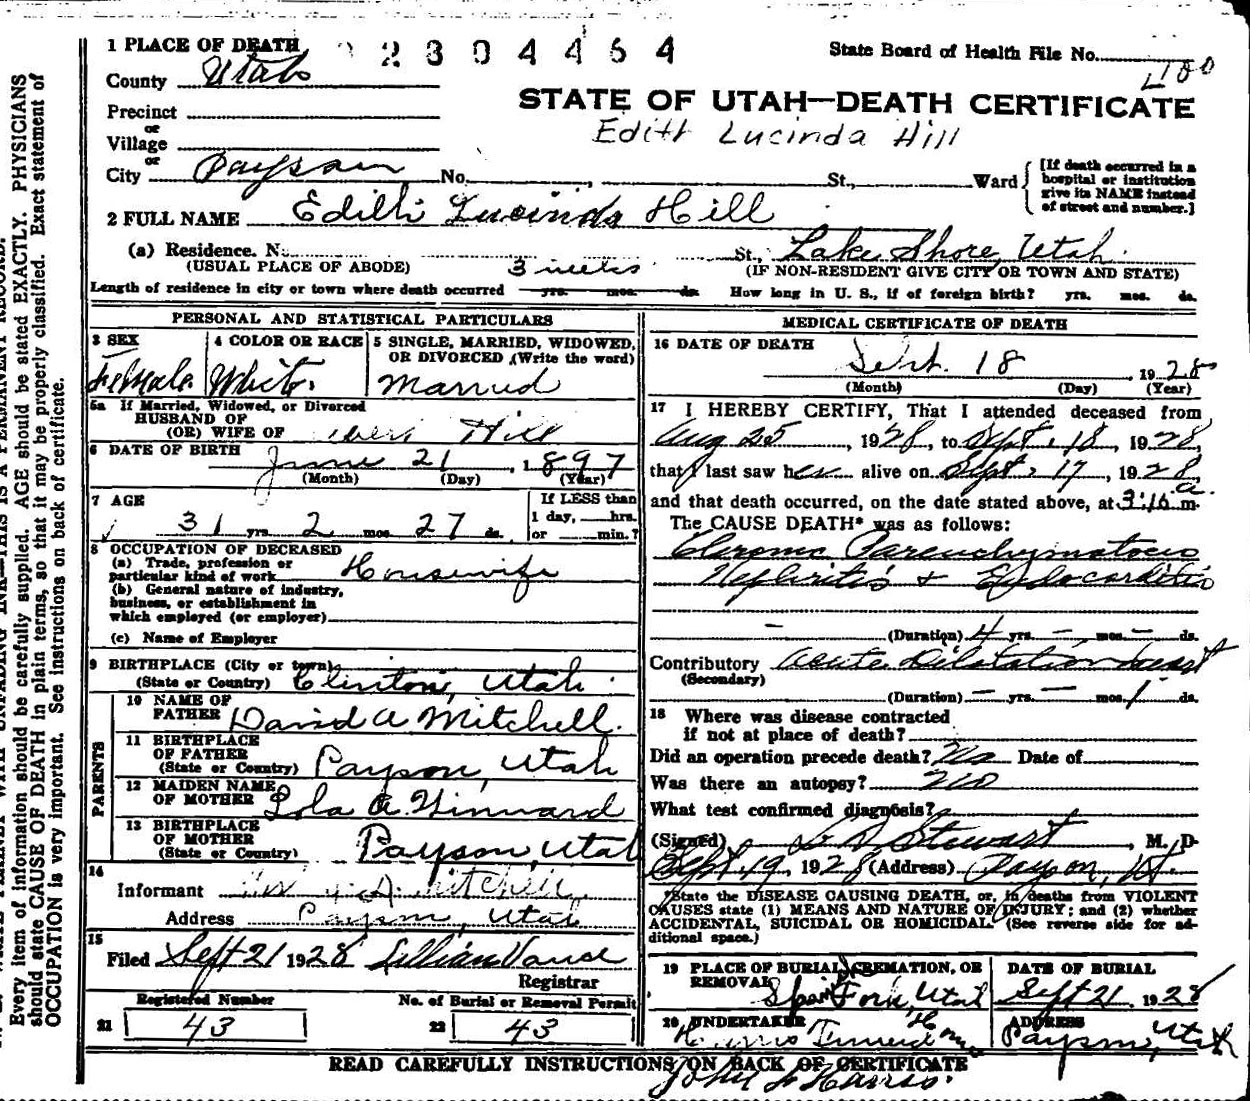 1 PLACE OF DEATH
2304464
State Board of Health File No.
County Utah
STATE OF UTAH—DEATH CERTIFICATE
Precinct
or
Edith Lucinda Hill
Village
or
City Payson No. , St., Ward
[If death occurred in a hospital or institution give its NAME instead of street and number.]
2 FULL NAME Edith Lucinda Hill
(a) Residence. No. St., Lake Shore, Utah.
(USUAL PLACE OF ABODE) 3 weeks (IF NON-RESIDENT GIVE CITY OR TOWN AND STATE)
Length of residence in city or town where death occurred yrs. mos. ds. How long in U. S., if of foreign birth? yrs. mos. ds.
PERSONAL AND STATISTICAL PARTICULARS
3 SEX Female
4 COLOR OR RACE White
5 SINGLE, MARRIED, WIDOWED, OR DIVORCED (Write the word) Married
5a If Married, Widowed, or Divorced
HUSBAND OF
(OR) WIFE OF Hill
6 DATE OF BIRTH June 21, 1897
(Month) (Day) (Year)
7 AGE
31 yrs. 2 mos. 27 ds.
If LESS than
1 day, hrs.
or min.?
8 OCCUPATION OF DECEASED
(a) Trade, profession or
particular kind of work Housewife
(b) General nature of industry,
business, or establishment in
which employed (or employer)
(c) Name of Employer
9 BIRTHPLACE (City or town)
(State or Country) Clinton, Utah.
PARENTS
10 NAME OF
FATHER David A Mitchell.
11 BIRTHPLACE
OF FATHER
(State or Country) Payson, Utah
12 MAIDEN NAME
OF MOTHER Lola A.
13 BIRTHPLACE
OF MOTHER
(State or Country) Payson, Utah
14
Informant Mitchell,
Address Payson, Utah
15
Filed Sept 21 1928 Lillian Vance
Registrar
Registered Number
21 43
No. of Burial or Removal Permit
22 43
MEDICAL CERTIFICATE OF DEATH
16 DATE OF DEATH
Sept. 18, 1928
(Month) (Day) (Year)
17 I HEREBY CERTIFY, That I attended deceased from
Aug 25, 1928, to Sept. 18, 1928,
that I last saw her alive on Sept. 17, 1928
and that death occurred, on the date stated above, at 3:15 a. m.
The CAUSE DEATH* was as follows:
Chronic Parenchymatous
Nephritis & Endocarditis
(Duration) 4 yrs. — mos. — ds.
Contributory Acute Dilatation heart
(Secondary)
(Duration) — yrs. — mos. 1 ds.
18 Where was disease contracted
if not at place of death?
Did an operation precede death? No Date of
Was there an autopsy? No
What test confirmed diagnosis?
(Signed) Stewart, M. D.
Sept. 19, 1928 (Address) Payson, Ut.
*State the DISEASE CAUSING DEATH, or, in deaths from VIOLENT
CAUSES state (1) MEANS AND NATURE OF INJURY; and (2) whether
ACCIDENTAL, SUICIDAL OR HOMICIDAL. (See reverse side for ad-
ditional space.)
19 PLACE OF BURIAL, CREMATION, OR
REMOVAL
Spanish Fork, Utah
DATE OF BURIAL
Sept 21, 1928
20 UNDERTAKER
Home
ADDRESS
Payson, Utah
READ CAREFULLY INSTRUCTIONS ON BACK OF CERTIFICATE
Harris.
Every item of information should be carefully supplied. AGE should be stated EXACTLY. PHYSICIANS
should state CAUSE OF DEATH in plain terms, so that it may be properly classified. Exact statement of
OCCUPATION is very important. See instructions on back of certificate.